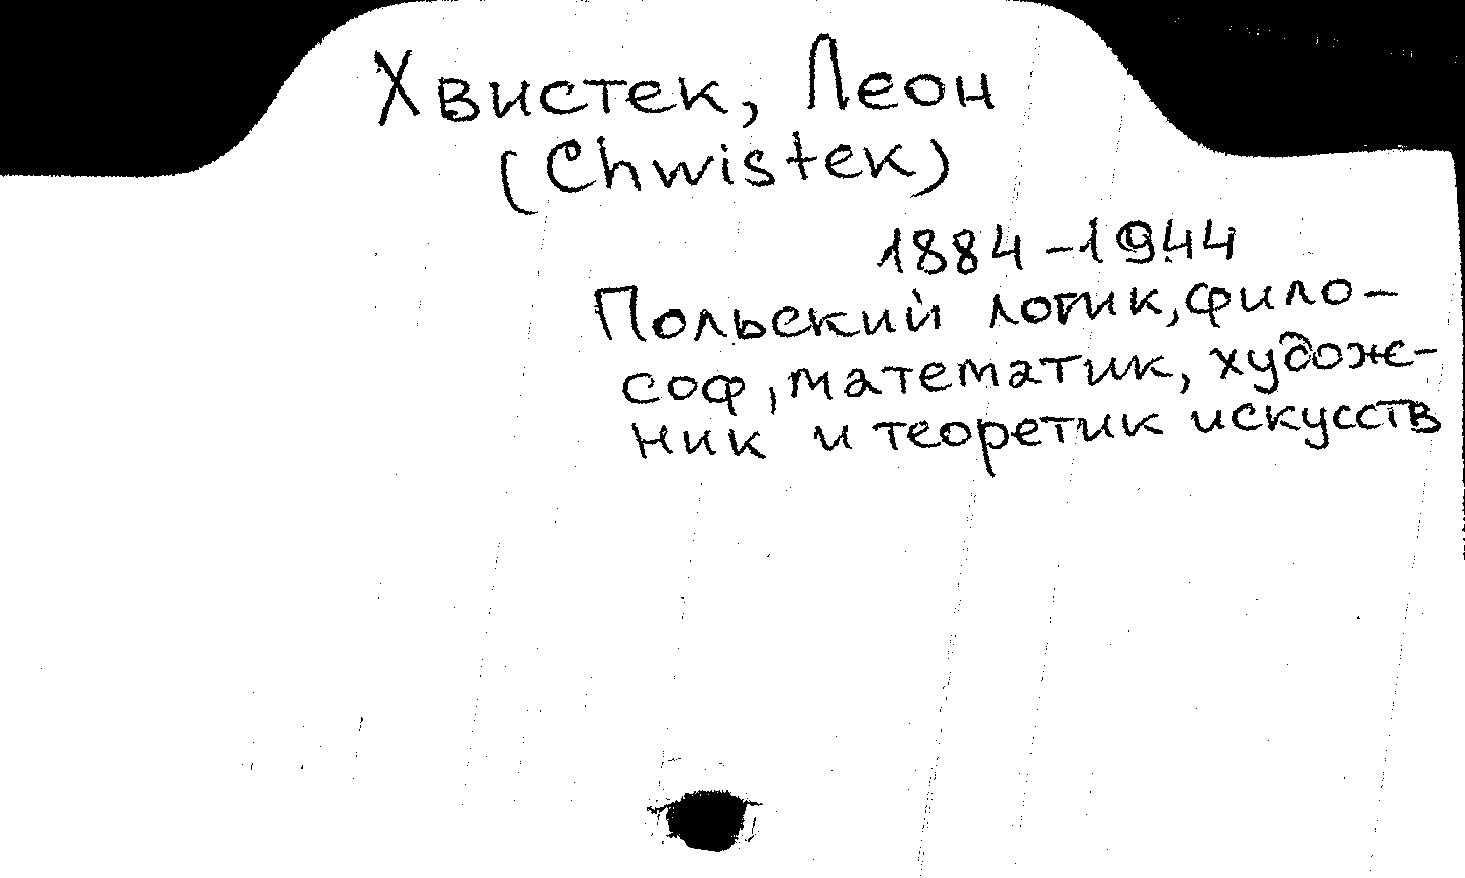 Хвистек, Леон
(Chwistek)
1884-1944
Польский логик, фило-
соф, математик, худож-
ник и теоретик искусств